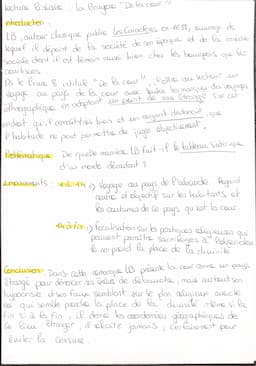 Lecture linéaire La Bruyère "De la cour"
Introduction:
LB, auteur classique publie Les Caractères en 1688, ouvrage de
lequel il dépeint de la société de son époque et de la
société dont il est témoin aussi bien chez les bourgeois que les
courtisans.
Ds le livre 8 intitulé "De la cour", l'offre au lecteur un
voyage au pays de la cour avec toutes les marques du voyage
ethnographique en adoptant un point de vue étranger sur cet
endroit qu'il connaît très bien et un regard distancié que
l'habitude ne peut permettre de juger objectivement.
Problématique: De quelle manière LB fait-il le tableau satirique
d'un monde décadent?
Mouvements
1) Voyage au pays de l'absurde Regard
naïf et objectif sur les habitants et
les coutumes de ce pays qu'est la cour.
Focalisation sur les pratiques religieuses qui
peuvent paraître sacrilèges
le roi prend la place de la divinité
Conclusion: Dans cette remarque LB présente la cour comme un pays
étrangé pour dénoncer ses excès de débauche, mais surtout son
hypocrisie et ses faux semblant sur le plan religieux avec le
roi qui semble prendre la place de la divinité même si à la
fin, il donne les coordonnées géographiques de
ce lieu étranger, il n'écrit jamais, certainement pour
éviter la censure.